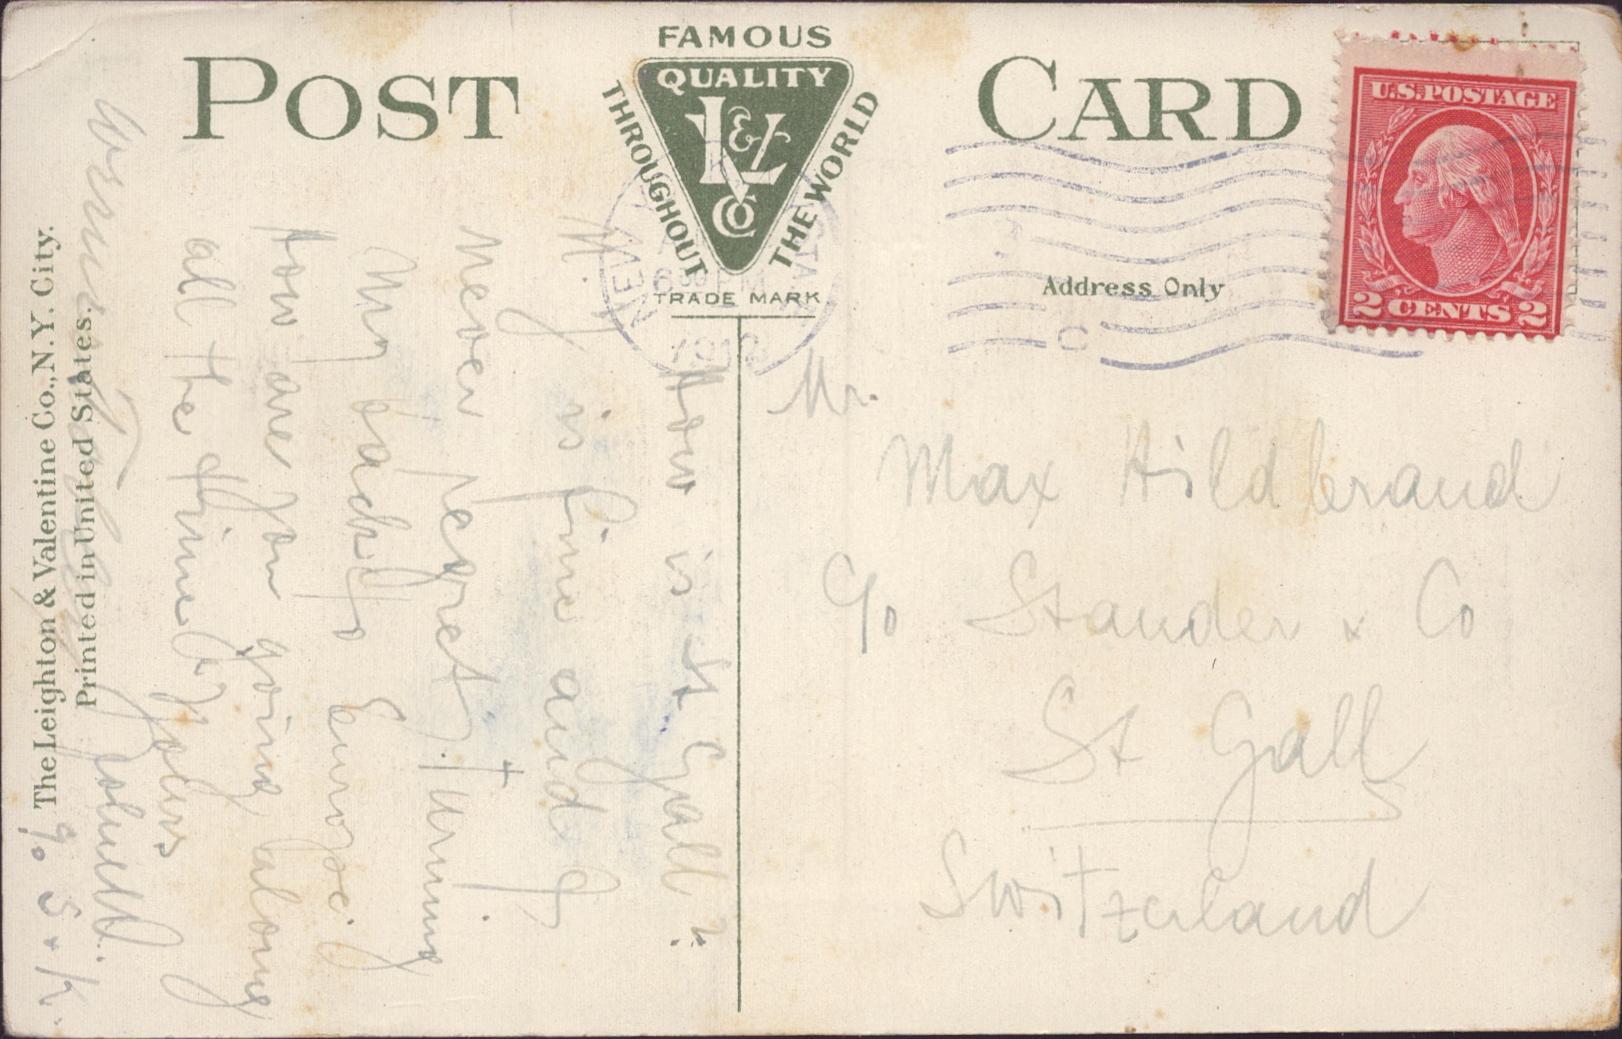 POST CARD
FAMOUS
QUALITY
THROUGHOUT
THE WORLD
L & V Co
TRADE MARK
Address Only
U.S. POSTAGE
2 CENTS 2
NEW YORK
STA
6 30 PM
191
How is St Gall?
N. Y. is fine and I
never regret turning
my back to Europe.
How are you going along
all the time? Yours
c/o S + K.
Mr.
Max Hildbrand
c/o Stauder & Co
St Gall
Switzerland
The Leighton & Valentine Co., N.Y. City.
Printed in United States.